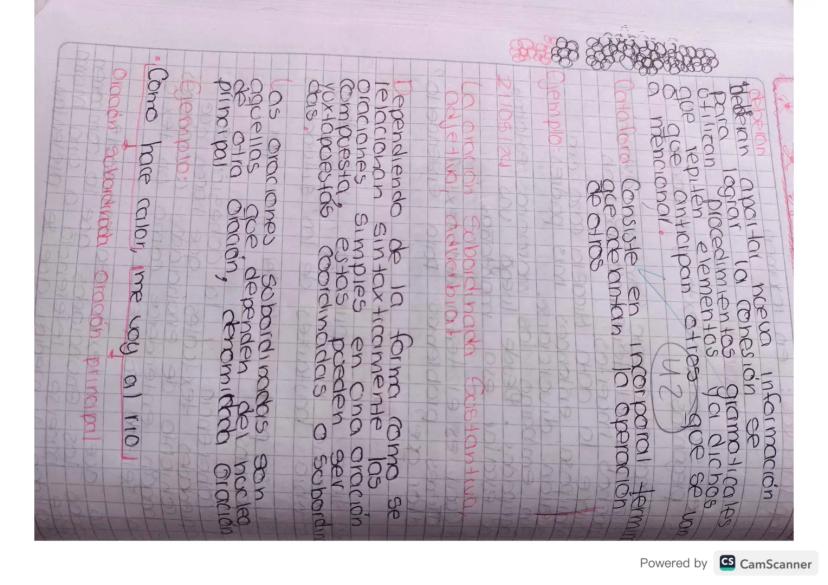 deberían
deberían aportar nueva información
para lograr la cohesión se
utilizan procedimientos gramaticales
que repiten elementos ya dichos
o que anticipan otros que se van
a mencionar.
42
Catáfora: Consiste en incorporar termin
que adelantan la operación
de otros
Ejemplo:
21/03/24
La oración Subordinada Sustantiva,
adjetiva y adverbial
Dependiendo de la forma como se
relacionan sintaxticamente las
oraciones simples en una oración
compuesta, estas pueden ser
yuxtapuestas coordinadas o subordin
das.
Las oraciones subordinadas son
aquellas que dependen del núcleo
de otra oración, denominada oración
principal
Ejemplo:
• Como hace calor, me voy al río
oración subordinada oración principal
Powered by CS CamScanner